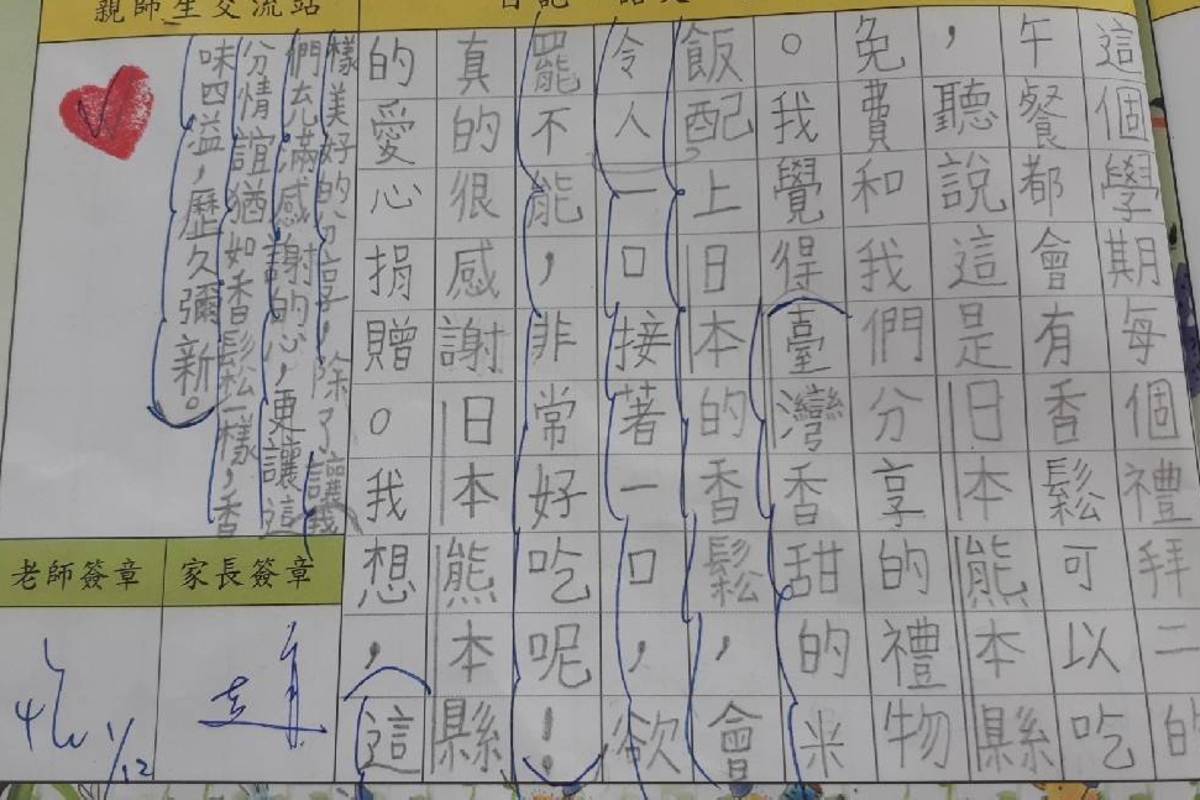 親師生交流站
這個學期每個禮拜二的
午餐都會有香鬆可以吃
，聽說這是日本熊本縣
免費和我們分享的禮物
。我覺得臺灣香甜的米
飯配上日本的香鬆，會
令人一口接著一口，欲
罷不能，非常好吃呢！
真的很感謝日本熊本縣
的愛心捐贈。我想，這
樣美好的分享，除了讓我
們充滿感謝的心，更讓這
分情誼猶如香鬆一樣，香
味四溢，歷久彌新。
家長簽章
老師簽章
1/12